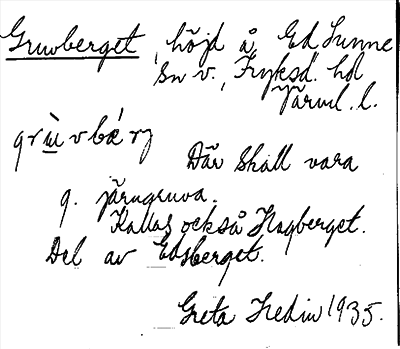 Gruvberget, höjd å Ed, Sunne
sn v., Fryksd. hd
Värml. l.
grùvbærj
Där skall vara
g. järngruva.
Kallas också Hagberget.
Del av Edsberget.
Greta Hedin 1935.